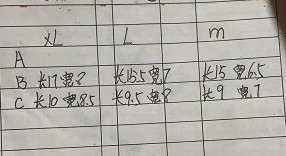 XL L m
A
B 长17宽8 长15.5宽7 长15宽6.5
C 长10宽8.5 长9.5宽8 长9宽7